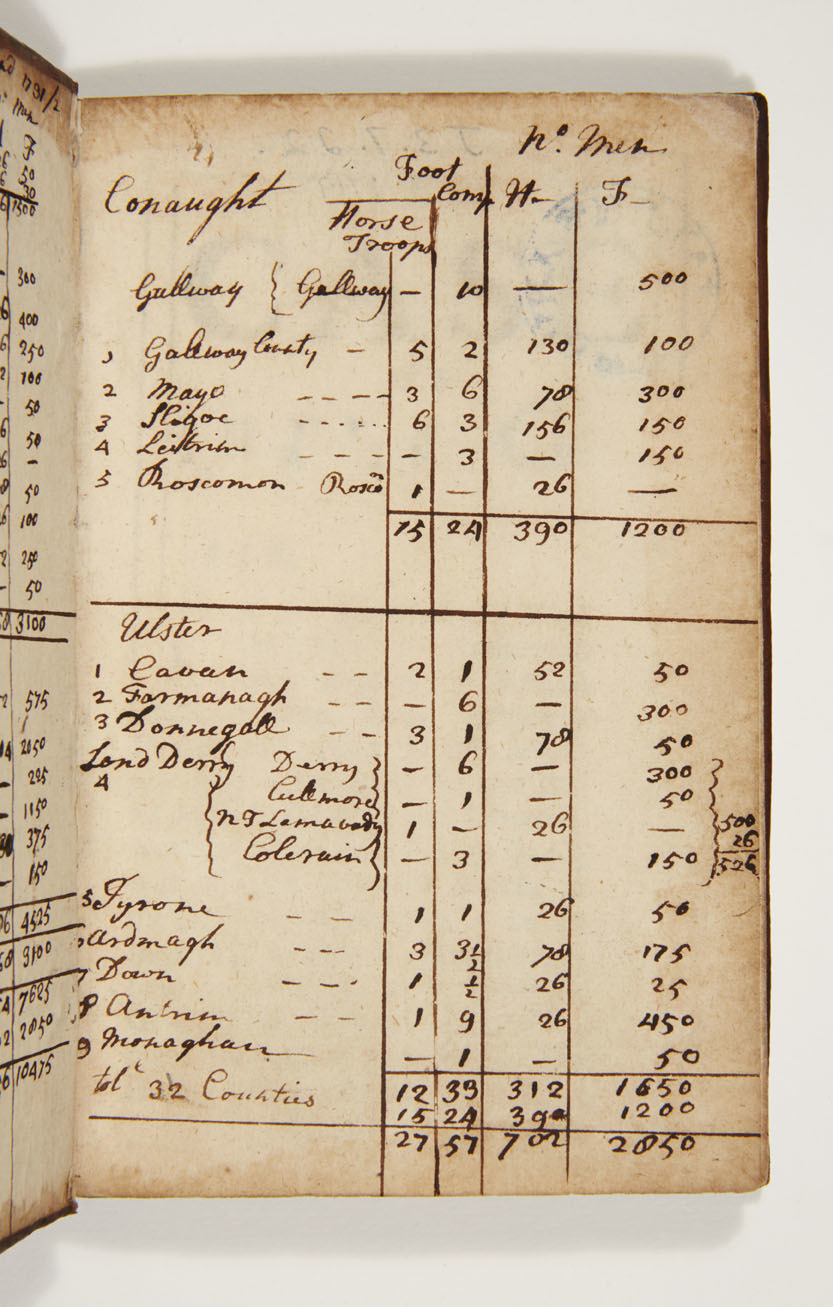 No. Men
Foot
Conaught Comp H F
Horse
Troops
Gallway { Gallway — 10 — 500
1 Gallway County – 5 2 130 100
2 Mayo – – – – 3 6 78 300
3 Sligoe - - - - - - 6 3 156 150
4 Leitrim – – – – 3 — 150
5 Roscomon Rosco 1 — 26 —
15 24 390 1200
Ulster
1 Cavan – – 2 1 52 50
2 Farmanagh – – — 6 — 300
3 Donnegall – – 3 1 78 50
Lond Derry Derry } — 6 — 300 }
4 { Cullmore — 1 — 50
N T Lamavady 1 — 26 — 500
26
Colerain } — 3 — 150 526
5 Tyrone – – 1 1 26 50
Ardmagh – – 3 3 1/2 78 175
7 Down – – - 1 1/2 26 25
8 Antrim – – 1 9 26 450
9 Monaghan — 1 — 50
tol 32 Counties 12 33 312 1650
15 24 390 1200
27 57 702 2850
1731/2
Men
F
50
30
1500
300
400
250
100
50
50
—
50
100
250
50
3100
575
2050
225
1150
375
150
4525
3100
7625
2850
10475